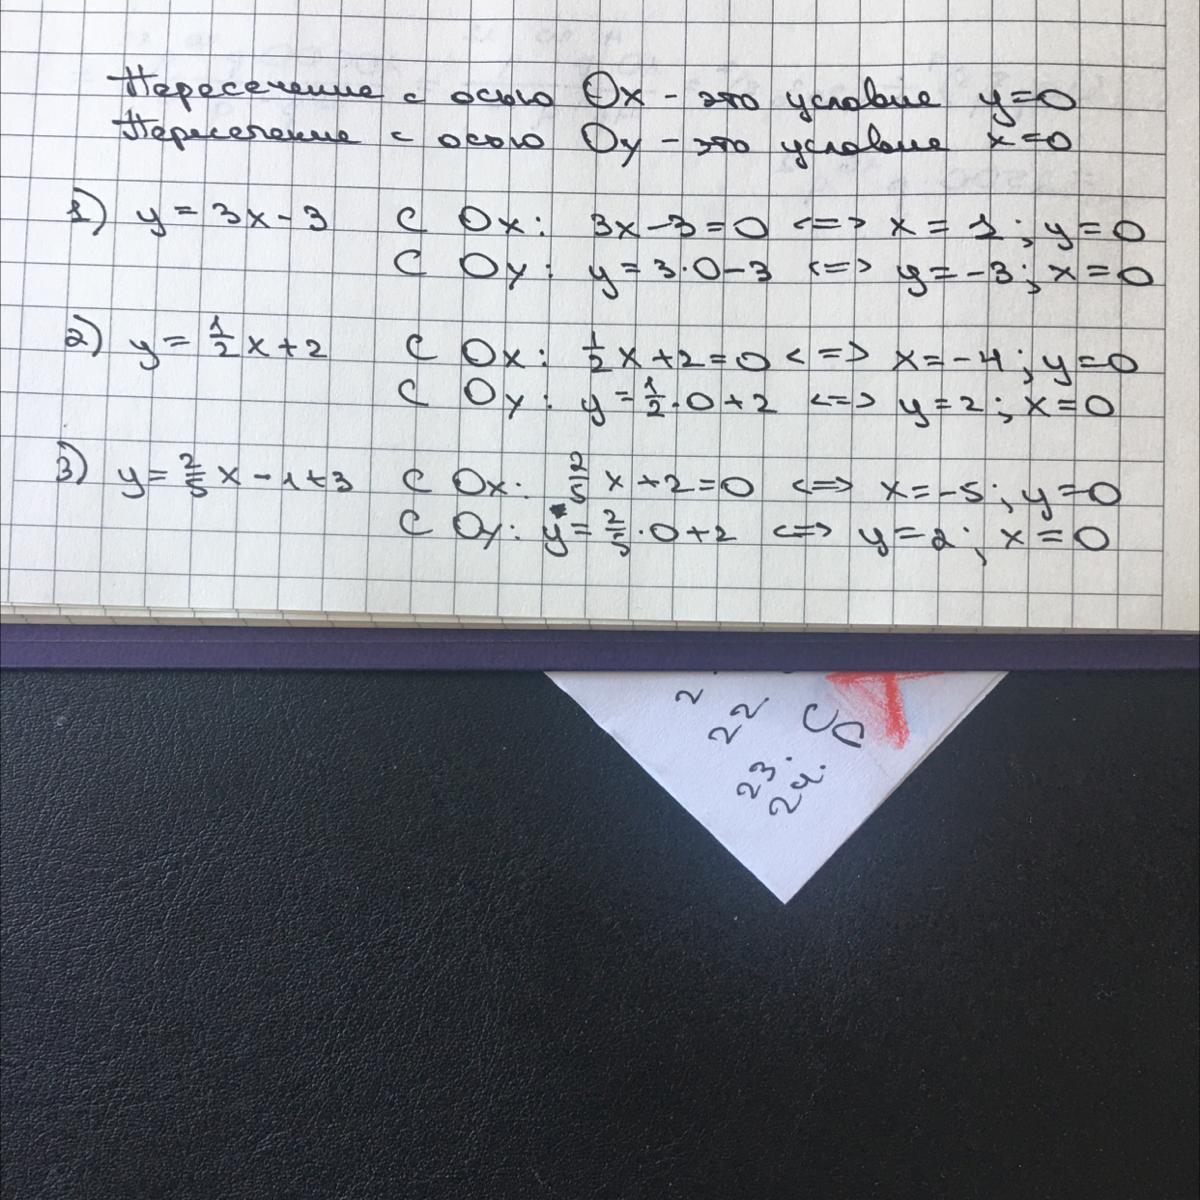 Пересечение с осью Ox - это условие y=0
Пересечение с осью Oy - это условие x=0
1) y = 3x - 3 С Ox: 3x-3=0 <=> x = 1; y=0
С Oy: y=3·0-3 <=> y=-3; x=0
2) y = 1/2 x + 2 С Ox: 1/2 x + 2 = 0 <=> x=-4; y=0
С Oy: y = 1/2 · 0 + 2 <=> y=2; x=0
3) y = 2/5 x - 1 + 3 С Ox: 2/5 x + 2 = 0 <=> x=-5; y=0
С Oy: y = 2/5 · 0 + 2 <=> y=2; x=0
2
22.
23. C
24. D